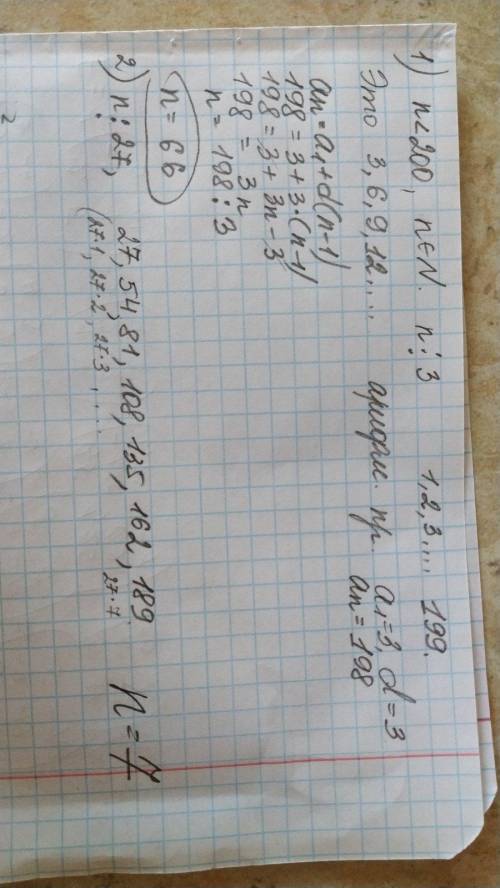 1) n<200, n∈N. n⋮3 1,2,3,... 199.
Это 3,6,9,12.... арифм. пр. a₁=3, d=3
an=198
an=a₁+d(n-1)
198=3+3·(n-1)
198=3+3n-3
198=3n
n=198:3
n=66
2) n⋮27, 27, 54 81, 108, 135, 162, 189 n=7
(27·1, 27·2, 27·3, .... 27·7
2